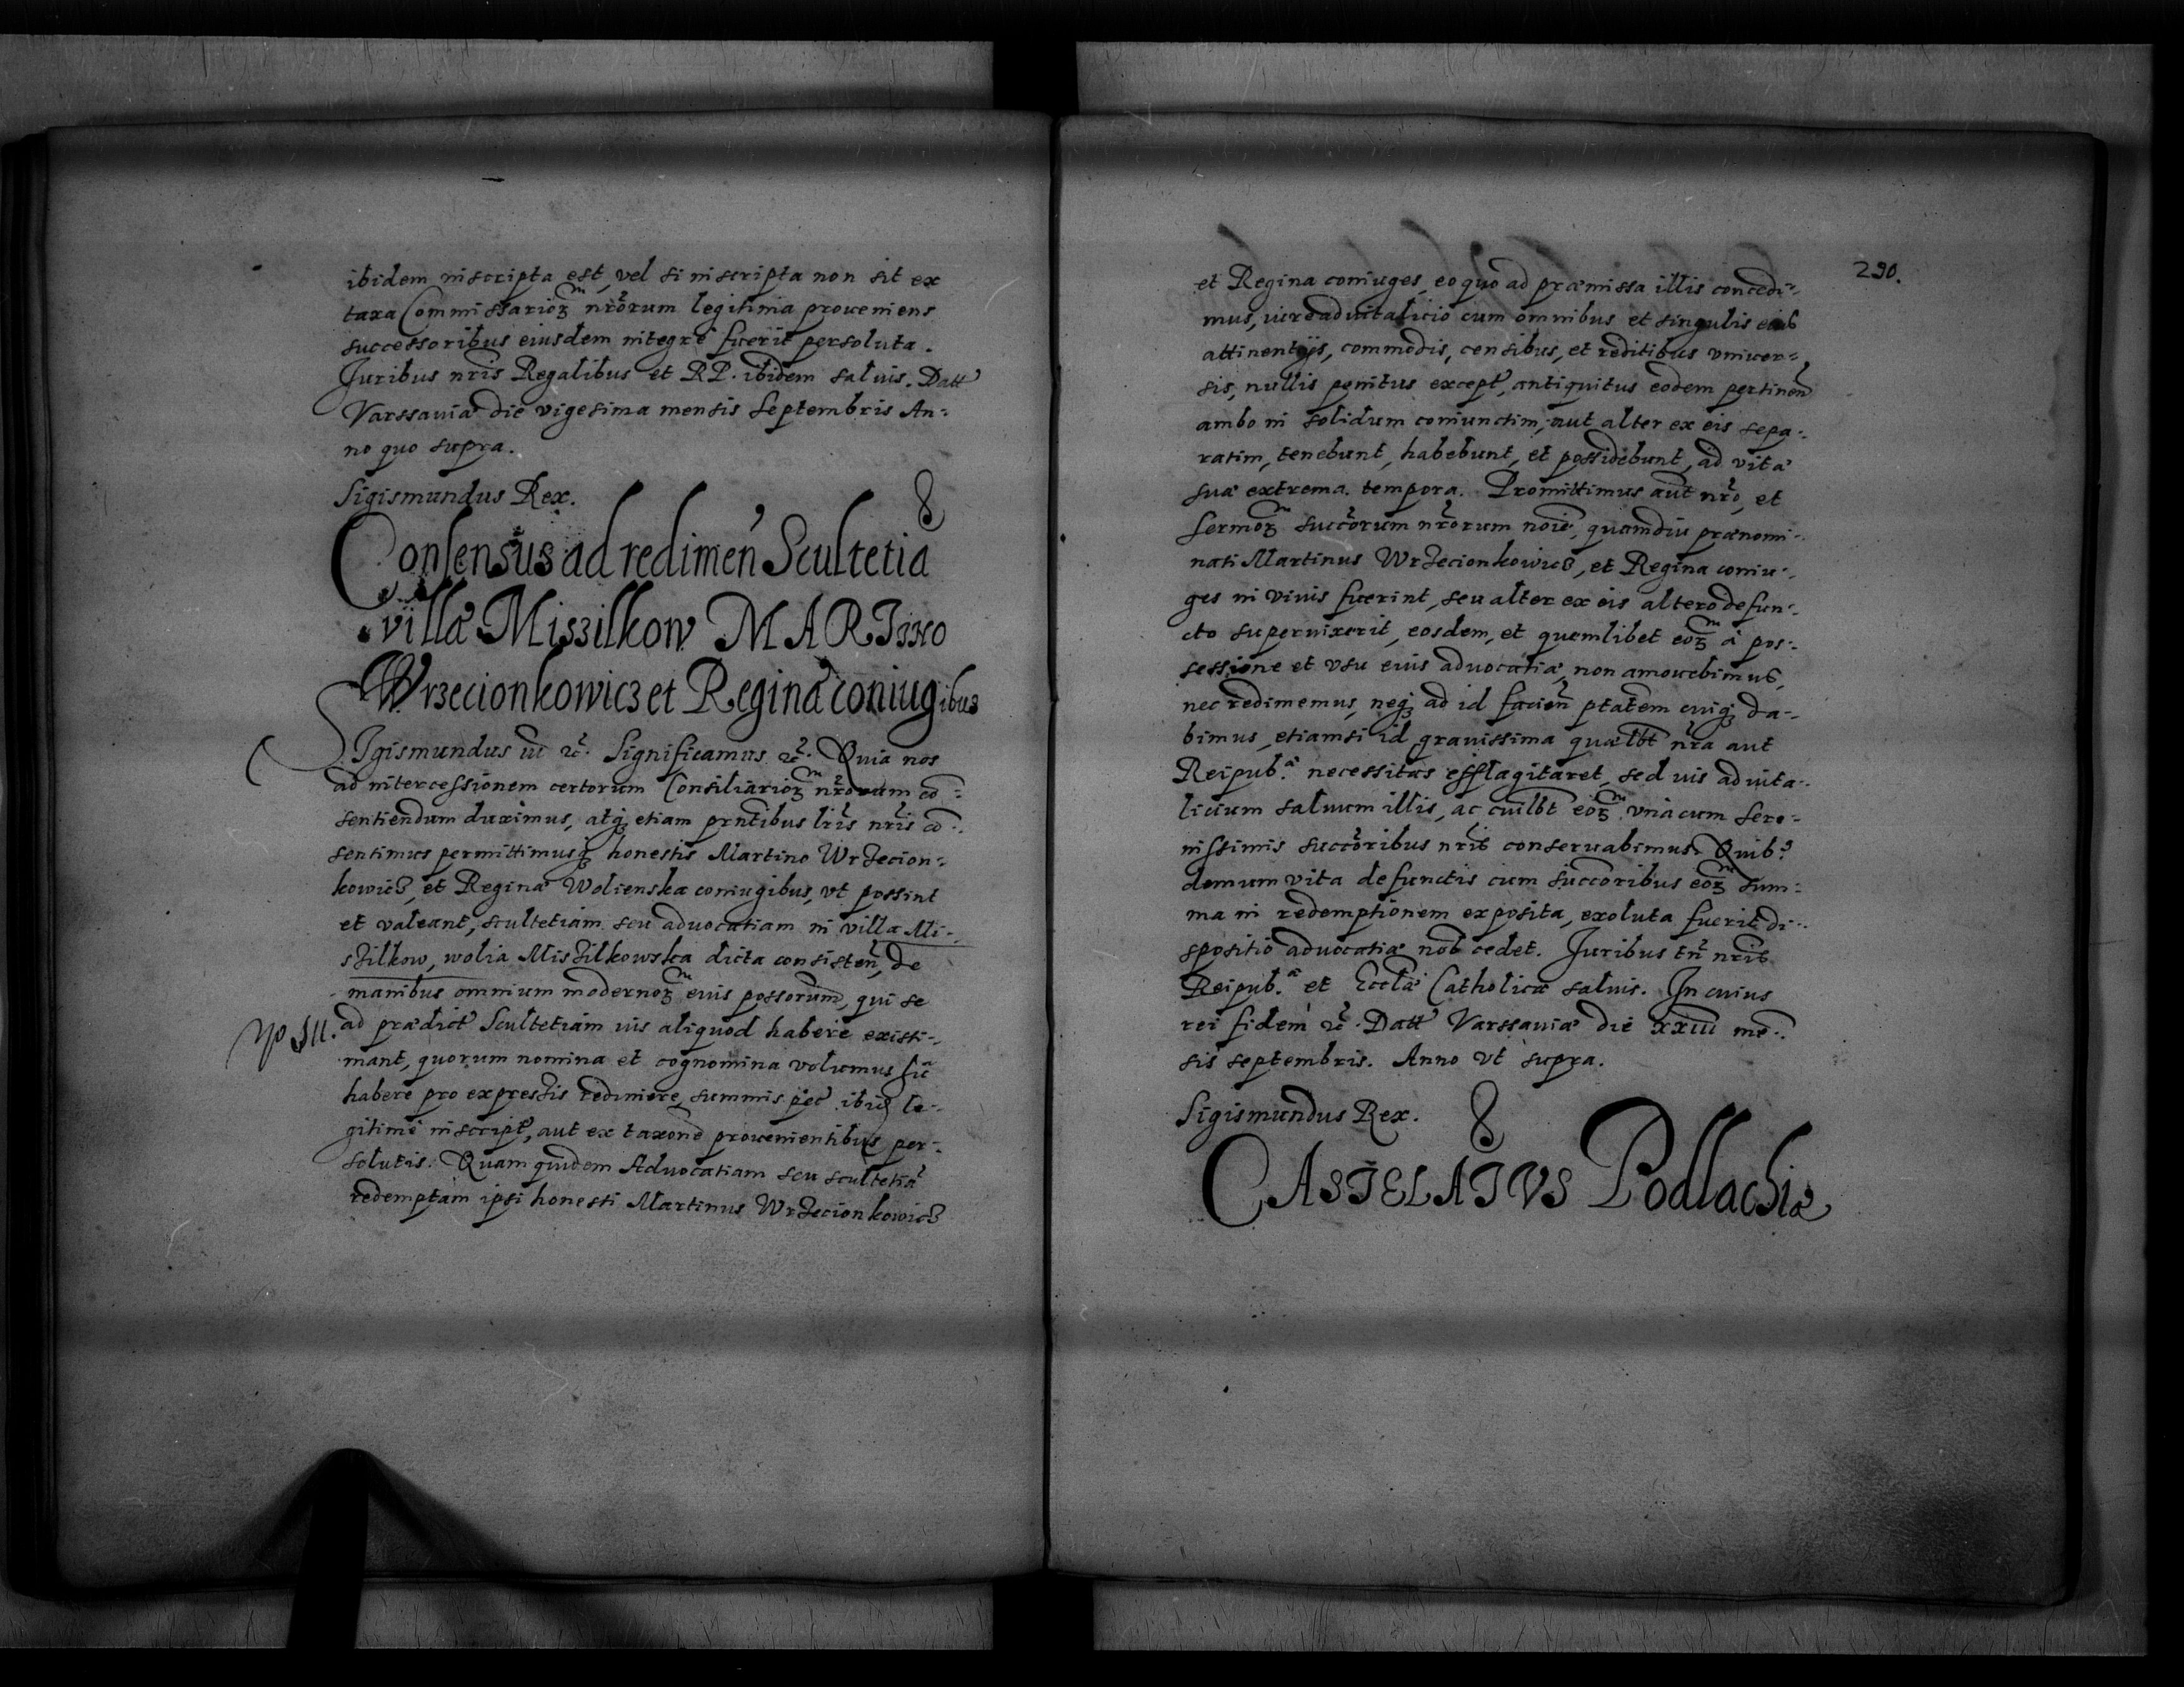 ibidem inscripta est, vel si inscripta non sit ex
taxa Commissarioꝝ nrõrum legitima proueniens
successoribus eiusdem integrè fuerit persoluta.
Juribus nrĩs Regalibus et RP. ibidem saluis. Datt
Varssauiæ die vigesima mensis Septembris An-
no quo supra.
Sigismundus Rex.
Consensus ad redimen̄ Scultetia
villæ Miszilkow MARTINO
Wrzecionkowicz et Reginæ coniugibus
SIgismundus iii ꝛc. Significamus ꝛc. Quia nos
ad intercessionem certorum Consiliarioꝝ nrõrum cõ-
sentiendum duximus, atqꝫ etiam prñtibus lrĩs nrĩs cõ-
sentimus permittimusqꝫ honestis Martino Wrzecion-
kowicz, et Reginæ Wolienska coniugibus, vt possint
et valeant, scultetiam seu aduocatiam in villa Mi-
szilkow, wolia Miszilkowska dicta consisten̄, de
manibus omnium modernoꝝ eius possorum, qui se
ad prædict Scultetiam ius aliquod habere existi-
mant, quorum nomina et cognomina volumus sic
habere pro expressis redimere, summis pec ibid le-
gitimè inscript, aut ex taxone prouenientibus per-
solutis. Quam quidem Aduocatiam seu scultetiã
redemptam ipsi honesti Martinus Wrzecionkowicz
290.
et Regina coniuges, eo quo ad præmissa illis concedi-
mus, iure aduitalicio cum omnibus et singulis eius
attinentijs, commodis, censibus, et reditibus vniuer-
sis, nullis penitus except, antiquitus eodem pertinen̄
ambo in solidum coniunctim, aut alter ex eis sepa-
ratim, tenebunt, habebunt, et possidebunt, ad vitæ
suæ extrema tempora. Promittimus aut̃ nrõ, et
Sermoꝝ succõrum nrõrum noĩe, quamdiu prænomi-
nati Martinus Wrzecionkowicz, et Regina coniu-
ges in viuis fuerint, seu alter ex eis altero defun-
cto superuixerit, eosdem, et quemlibet eoꝝ à pos-
sessione et vsu eius aduocatiæ, non amouebimus,
nec redimemus, neqꝫ ad id facien̄ ptatẽm cuiqꝫ da-
bimus, etiamsi id grauissima quælbt nrã aut
Reipub.æ necessitas efflagitaret, sed ius aduita-
licium saluum illis, ac cuilbt eoꝝ vnà cum Sere-
nissimis succõribus nrĩs conseruabimus. Quib9
demum vita defunctis cum succõribus eoꝝ sum-
ma in redemptionem exposita, exoluta fuerit di-
spositio aduocatiæ nob cedet. Juribus tñ nrĩs
Reipub.æ et Ecclæ Catholicæ saluis. In cuius
rei fidem ꝛc. Datt Varssauiæ die xxiii mẽ-
sis septembris. Anno vt supra.
Sigismundus Rex.
CASTELATVS Podlachiæ